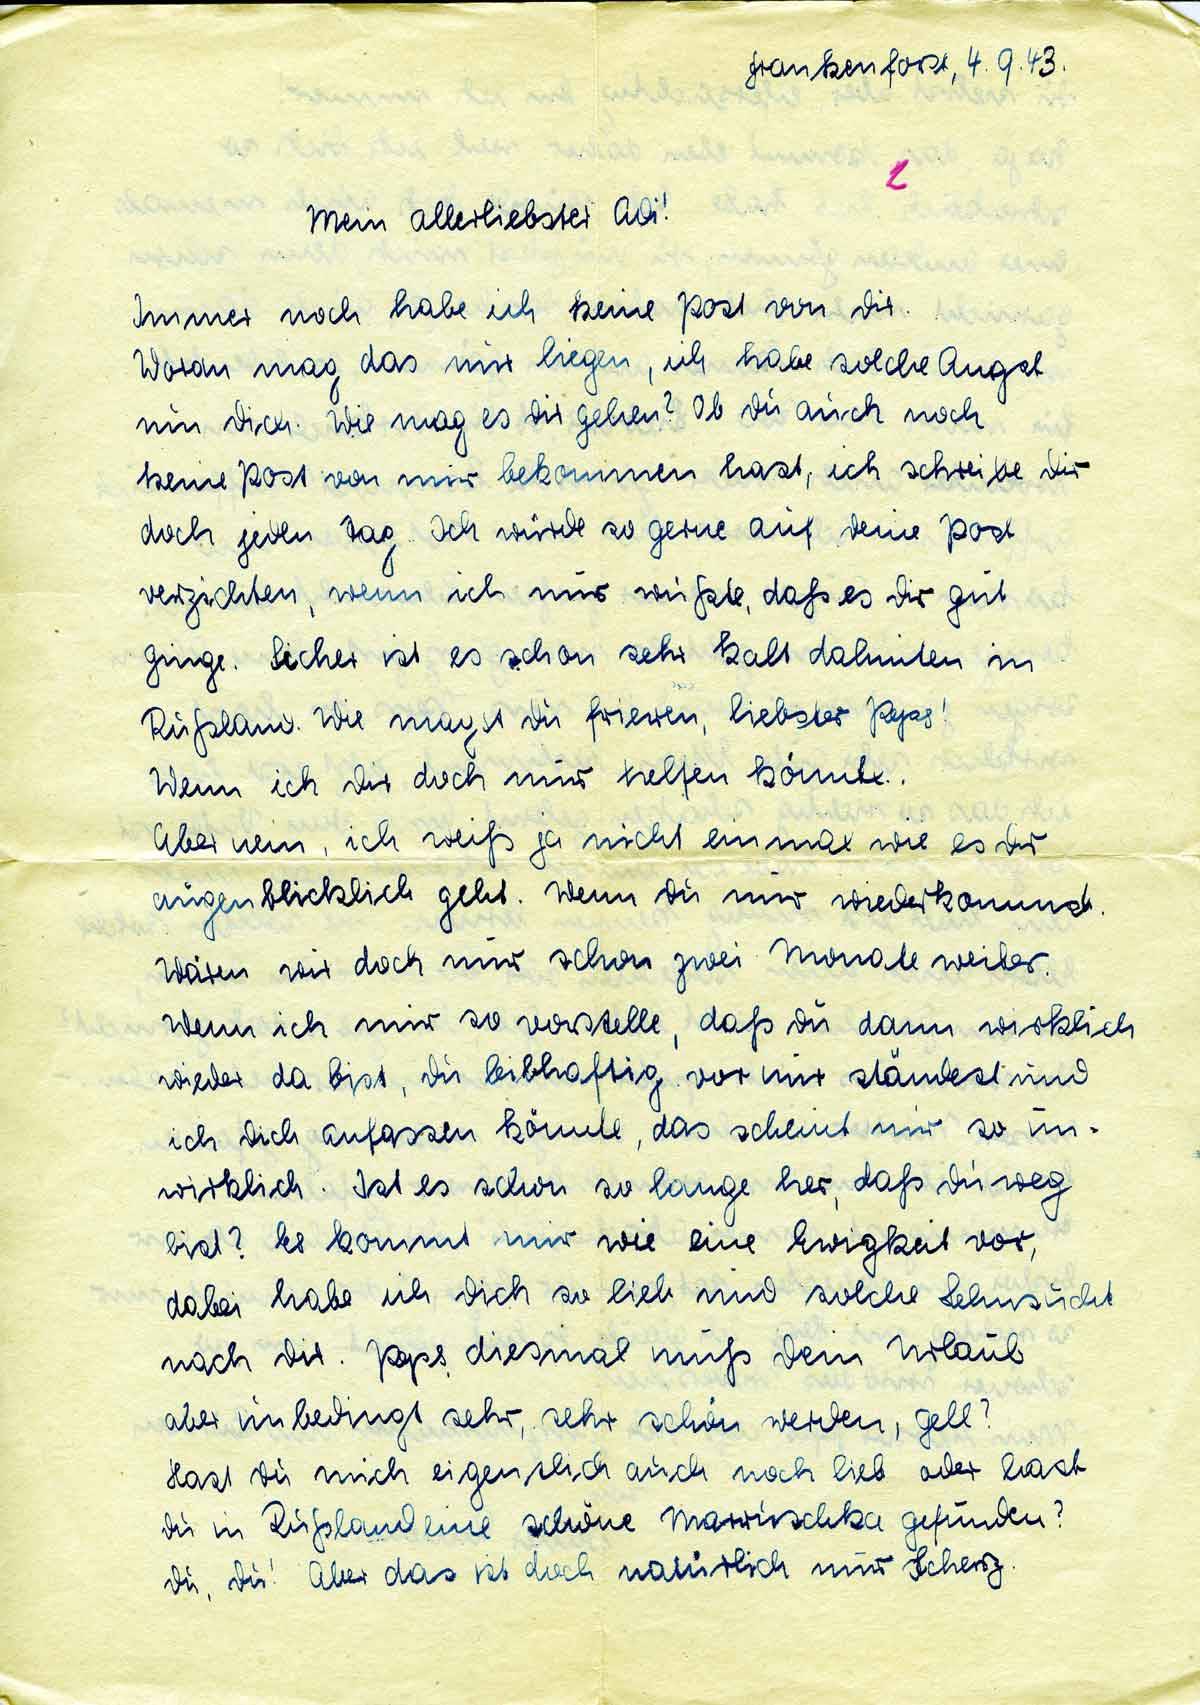 Frankenforst, 4.9.43.
2
Mein allerliebster Adi!
Immer noch habe ich keine Post von dir.
Woran mag das nur liegen, ich habe solche Angst
um dich. Wie mag es dir gehen? Ob du auch noch
keine Post von mir bekommen hast, ich schreibe dir
doch jeden Tag. Ich würde so gerne auf deine Post
verzichten, wenn ich nur wüßte, daß es dir gut
ginge. Sicher ist es schon sehr kalt dahinten in
Rußland. Wie magst du frieren, liebster Peps!
Wenn ich dir doch nur helfen könnte.
Aber nein, ich weiß ja nicht einmal wie es dir
augenblicklich geht. Wenn du nur wiederkommst.
Wären wir doch nur schon zwei Monate weiter.
Wenn ich mir so vorstelle, daß du dann wirklich
wieder da bist, du leibhaftig vor mir ständest und
ich dich anfassen könnte, das scheint mir so un-
wirklich. Ist es schon so lange her, daß du weg
bist? Es kommt mir wie eine Ewigkeit vor,
dabei habe ich dich so lieb und solche Sehnsucht
nach dir. Peps, diesmal muß dein Urlaub
aber unbedingt sehr, sehr schön werden, gell?
Hast du mich eigentlich auch noch lieb oder hast
du in Rußland eine schöne Marruschka gefunden?
du, du! Aber das ist doch natürlich nur Scherz.